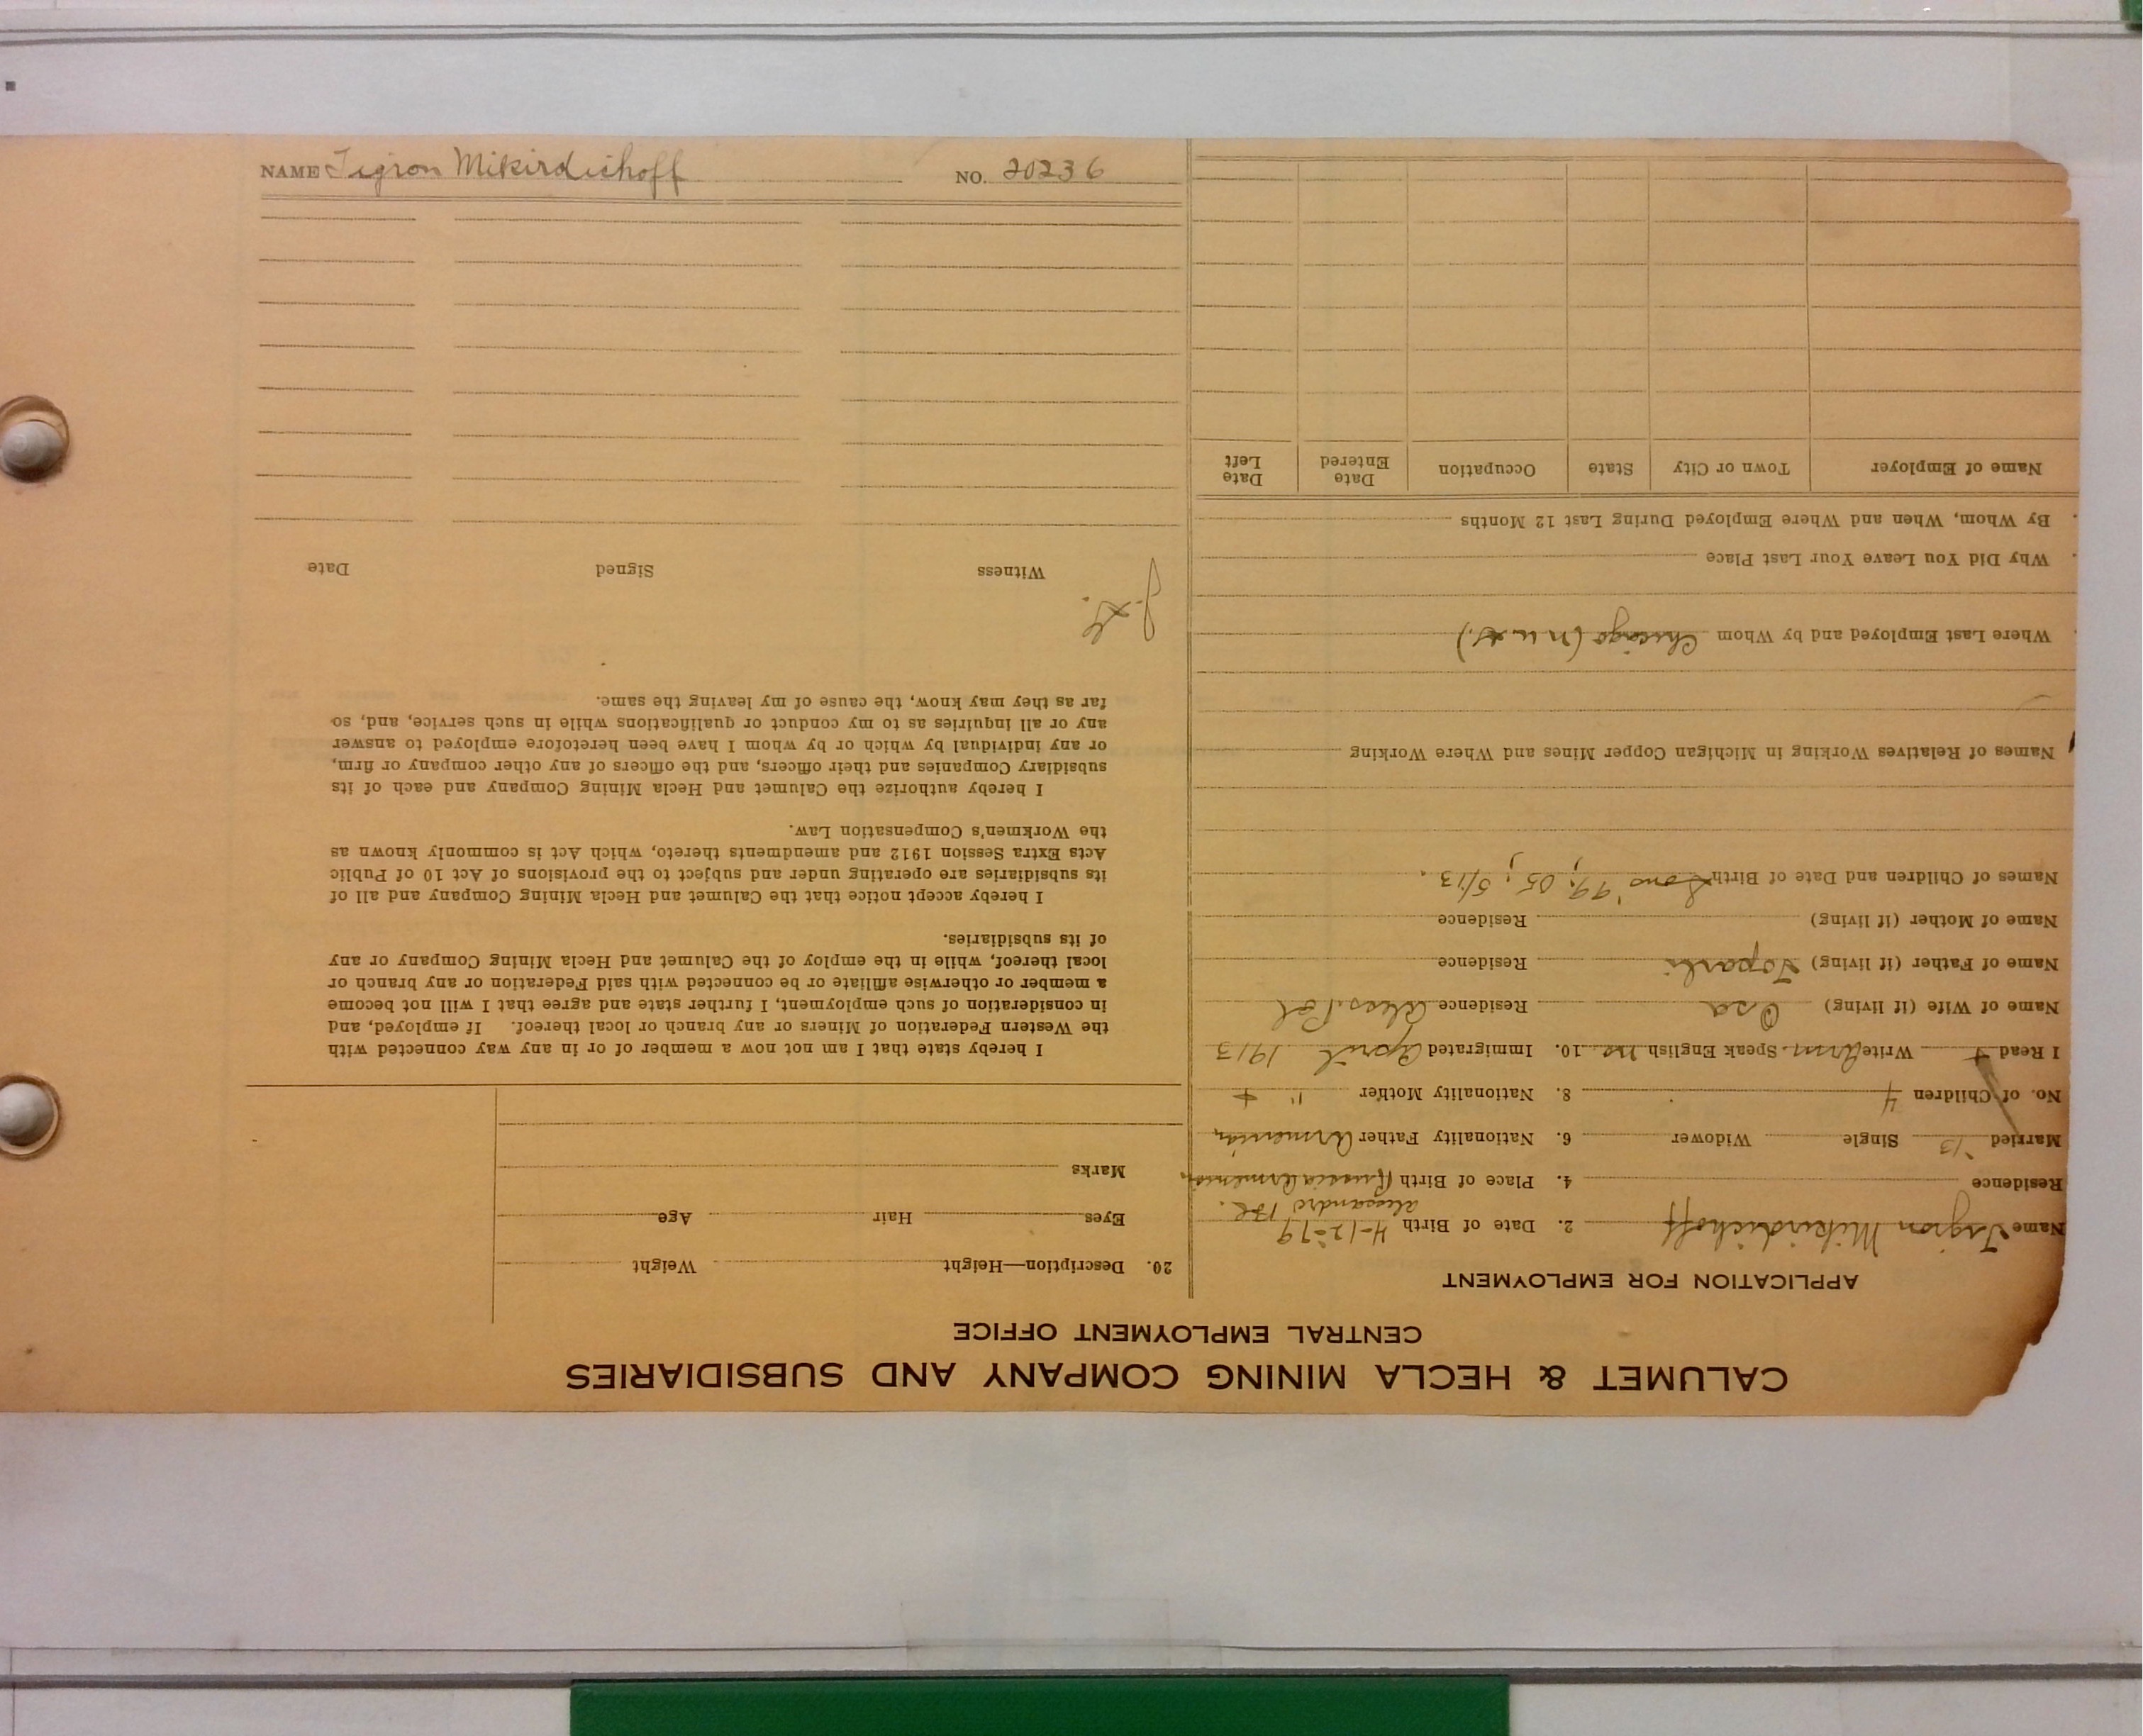 NAME Tigron Mikirdichoff NO. 20236
CALUMET & HECLA MINING COMPANY AND SUBSIDIARIES
CENTRAL EMPLOYMENT OFFICE
APPLICATION FOR EMPLOYMENT
Name Tigron Mikirdichoff 2. Date of Birth 4-12-79
Residence 4. Place of Birth Russia Armenia
Married '13 Single Widower 6. Nationality Father Armenian
No. of Children 4 8. Nationality Mother "
I Read Write Arm. Speak English no 10. Immigrated April 1913
Name of Wife (if living) Osa Residence Aless. Pol
Name of Father (if living) Residence
Name of Mother (if living) Residence
Names of Children and Date of Birth Sons '99; 05; 5/13.
Names of Relatives Working in Michigan Copper Mines and Where Working
Where Last Employed and by Whom Chicago
Why Did You Leave Your Last Place
By Whom, When and Where Employed During Last 12 Months
Name of Employer Town or City State Occupation Date Entered Date Left
20. Description—Height Weight
Eyes Hair Age
Marks
I hereby state that I am not now a member of or in any way connected with
the Western Federation of Miners or any branch or local thereof. If employed, and
in consideration of such employment, I further state and agree that I will not become
a member or otherwise affiliate or be connected with said Federation or any branch or
local thereof, while in the employ of the Calumet and Hecla Mining Company or any
of its subsidiaries.
I hereby accept notice that the Calumet and Hecla Mining Company and all of
its subsidiaries are operating under and subject to the provisions of Act 10 of Public
Acts Extra Session 1912 and amendments thereto, which Act is commonly known as
the Workmen's Compensation Law.
I hereby authorize the Calumet and Hecla Mining Company and each of its
subsidiary Companies and their officers, and the officers of any other company or firm,
or any individual by which or by whom I have been heretofore employed to answer
any or all inquiries as to my conduct or qualifications while in such service, and, so
far as they may know, the cause of my leaving the same.
Witness Signed Date